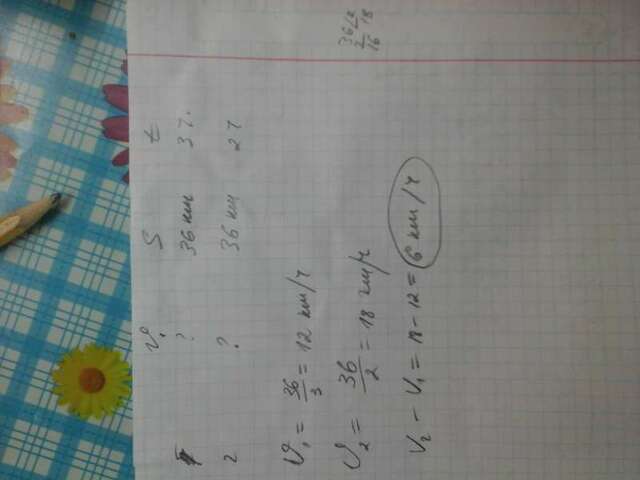 V S t
? 36 км 3 ч.
2 ? 36 км 2 ч
V₁ = 36/3 = 12 км/ч
V₂ = 36/2 = 18 км/ч
V₂ - V₁ = 18 - 12 = 6 км/ч
36 2
2 18
16